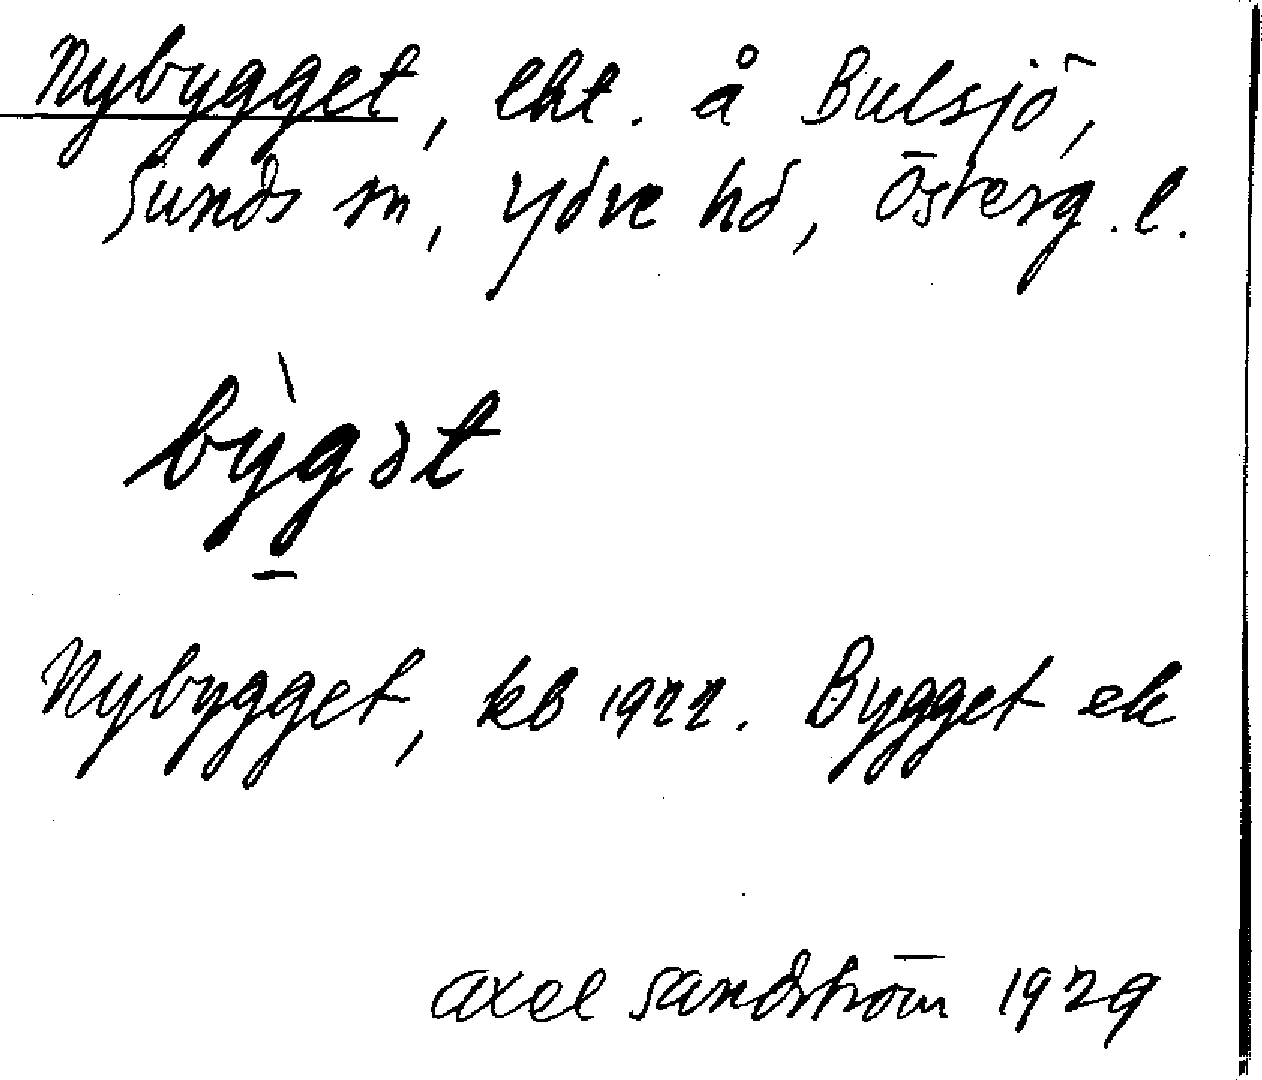 Nybygget, lht. å Bulsjö,
Sunds sn, Ydre hd, Österg.l.
bỳgət
Nybygget, kb 1922. Bygget ek
Axel Sandström 1929